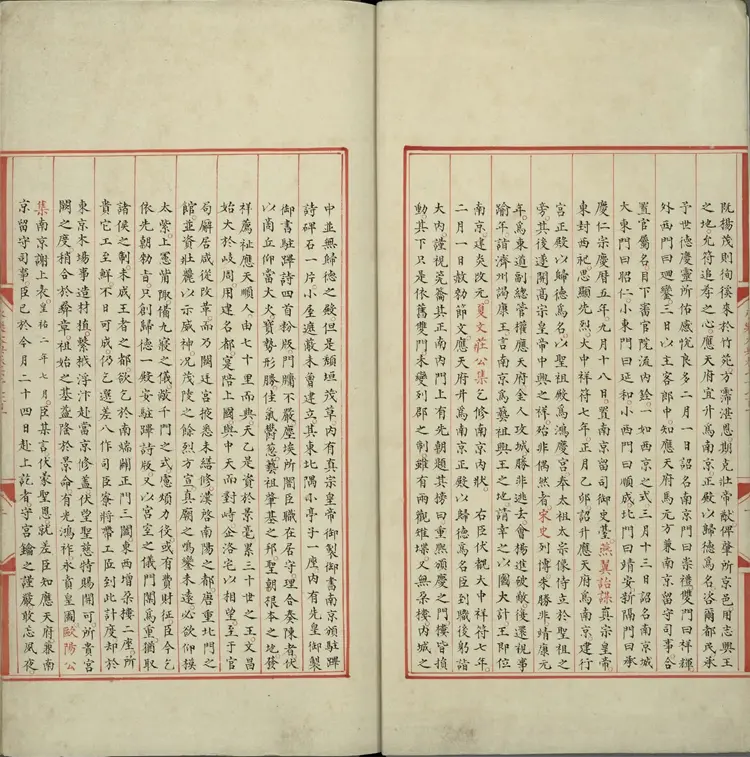 阮揚茂則徇徯來於竹苑方霈湛恩期克壯帝猷俾肇所京邑用志興王
之地允符追孝之心應天府宜升為南京正殿以歸德為名咨爾都民承
予世德慶靈所佑感忱良多二月一日詔名南京門曰崇禮雙門曰祥輝
外西門曰迴鑾三日以主客郎中知應天府馬元方兼南京留司事合
置官屬名目下審官院流內銓一如西京之式三月十三日詔名南京城
大東門曰昭仁小東門曰延和小西門曰順成北門曰靖安新隔門曰承
慶仁宗慶曆五年九月十八日置南京留司御史臺燕翼詒謀真宗皇帝
東封西祀思顯先烈大中祥符七年正月乙卯詔升應天府為南京建行
宮正殿以歸德為名以聖祖殿為鴻慶宮奉太祖太宗像侍立於聖祖之
旁其後遂開高宗皇帝中興之祥始非偶然者宋史列傳朱勝非靖康元
年為東道副總管權應天府金人攻城勝非逃去會楊進破敵復還視事
踰年謁濟州謁康王言南京為藝祖興王之地請幸之以圖大計王即位
南京建炎改元夏文莊公集乞修南京內狀 右臣伏覩大中祥符七年
二月一日敕勅節文應天府升為南京正殿以歸德為名臣到職後躬詣
大內謹視筦籥其正南門上有先朝題其榜曰重熙頒慶之門樓皆損
動其下只是依舊雙門未變列郡之制雖有兩觀雉堞又無朵樓內城之
中並無歸德之殿但是頹垣茂草內有真宗皇帝御製御書南京頒駐蹕
詩碑石一片小屋遮蔽未曾建立其東北隅小亭子一座內有先皇御製
御書駐蹕詩四首粉版門牖不嚴塵埃所闇臣職在居守理合奏陳者伏
以商丘仰當大火寶勢形勝佳氣鬱蔥藝祖肇基之邦聖朝根本之地發
祥薦祉應天順人由七十里而興天乙是資於景亳累三十世之王文昌
始大於岐周用建名都寔陪上國與中天而對峙企洛宅以相望至于官
司廨居咸從改革而乃閟廷宮掖悉未繕修漢啓南陽之都唐重北門之
館並資壯麗以示威神况茂陵之餘烈方宣真廟之僞變未遠必欲仰模
太紫上憲甫陬備九寢之儀敞千門之式慮煩力役或有費財征臣今乞
依先朝勅旨只創歸德一殿安駐蹕詩版又以宮室之儀門闕為重猶取
諸侯之制未成王者之都欲乞於南端闢正門三闕東西增朵樓二座所
貴它工至鮮不日可成仍乞選差八作司臣寮將帶工匠到此計度却於
東京木場事造材植繫栰浮汴赴當京修蓋伏望聖慈特賜開可所貴宮
闕之度稍合於彝章祖始之基益隆於景命有光鴻祚永資皇圖歐陽公
集南京謝上表皇祐二年七月臣某言伏蒙聖恩就差臣知應天府兼南
京留守司事臣已於今月二十四日赴上訖者守宮鑰之謹嚴敢忘夙夜